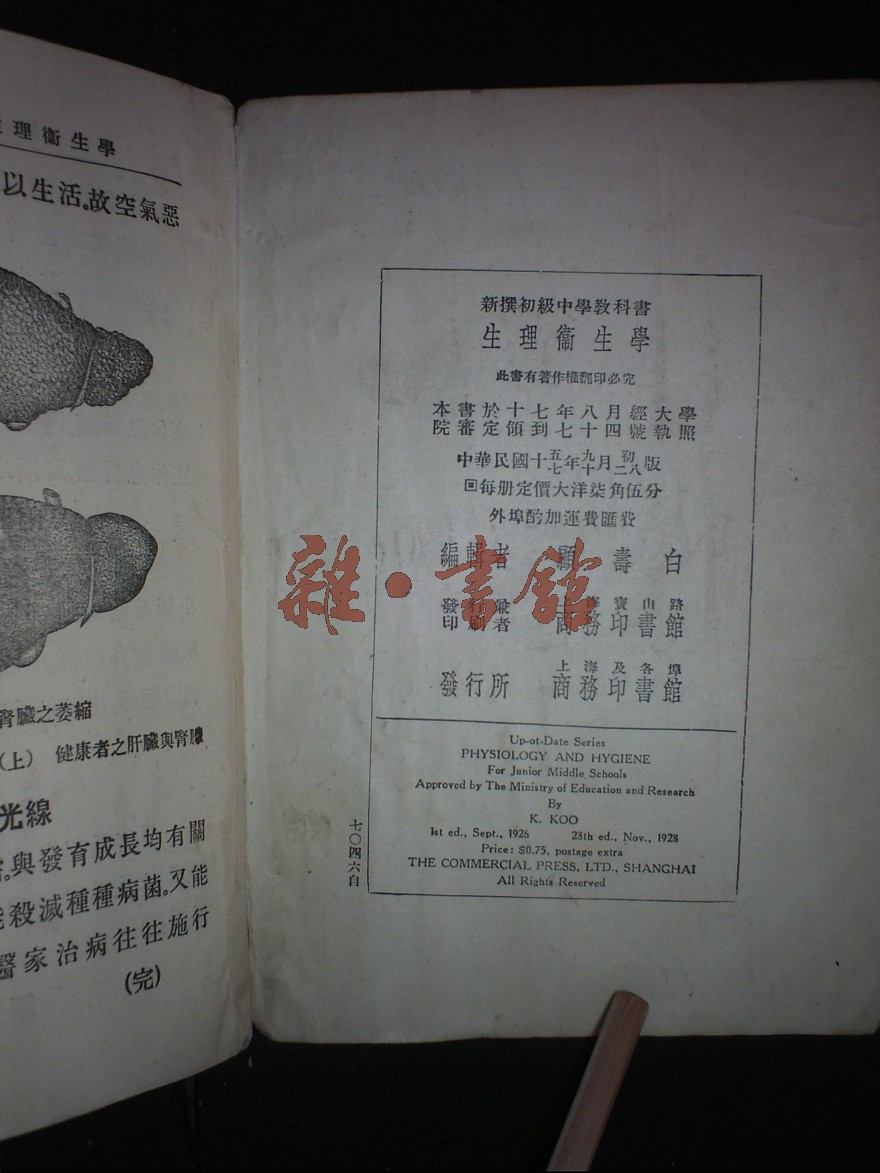 理衞生學
以生活。故空氣惡
腎臟之萎縮
(上) 健康者之肝臟與腎臟
光線
與發育成長均有關
殺滅種種病菌。又能
醫家治病往往施行
(完)
新撰初級中學教科書
生理衞生學
此書有著作權翻印必究
本書於十七年八月經大學
院審定領到七十四號執照
中華民國十五七年九十一月初二八版
回每册定價大洋柒角伍分
外埠酌加運費匯費
編輯者 顧壽白
發行兼印刷者 上海寶山路 商務印書館
發行所 上海及各埠 商務印書館
雜·書館
Up-ot-Date Series
PHYSIOLOGY AND HYGIENE
For Junior Middle Schools
Approved by The Ministry of Education and Research
By
K. KOO
1st ed., Sept., 1926 28th ed., Nov., 1928
Price: $0.75, postage extra
THE COMMERCIAL PRESS, LTD., SHANGHAI
All Rights Reserved
七〇四六自